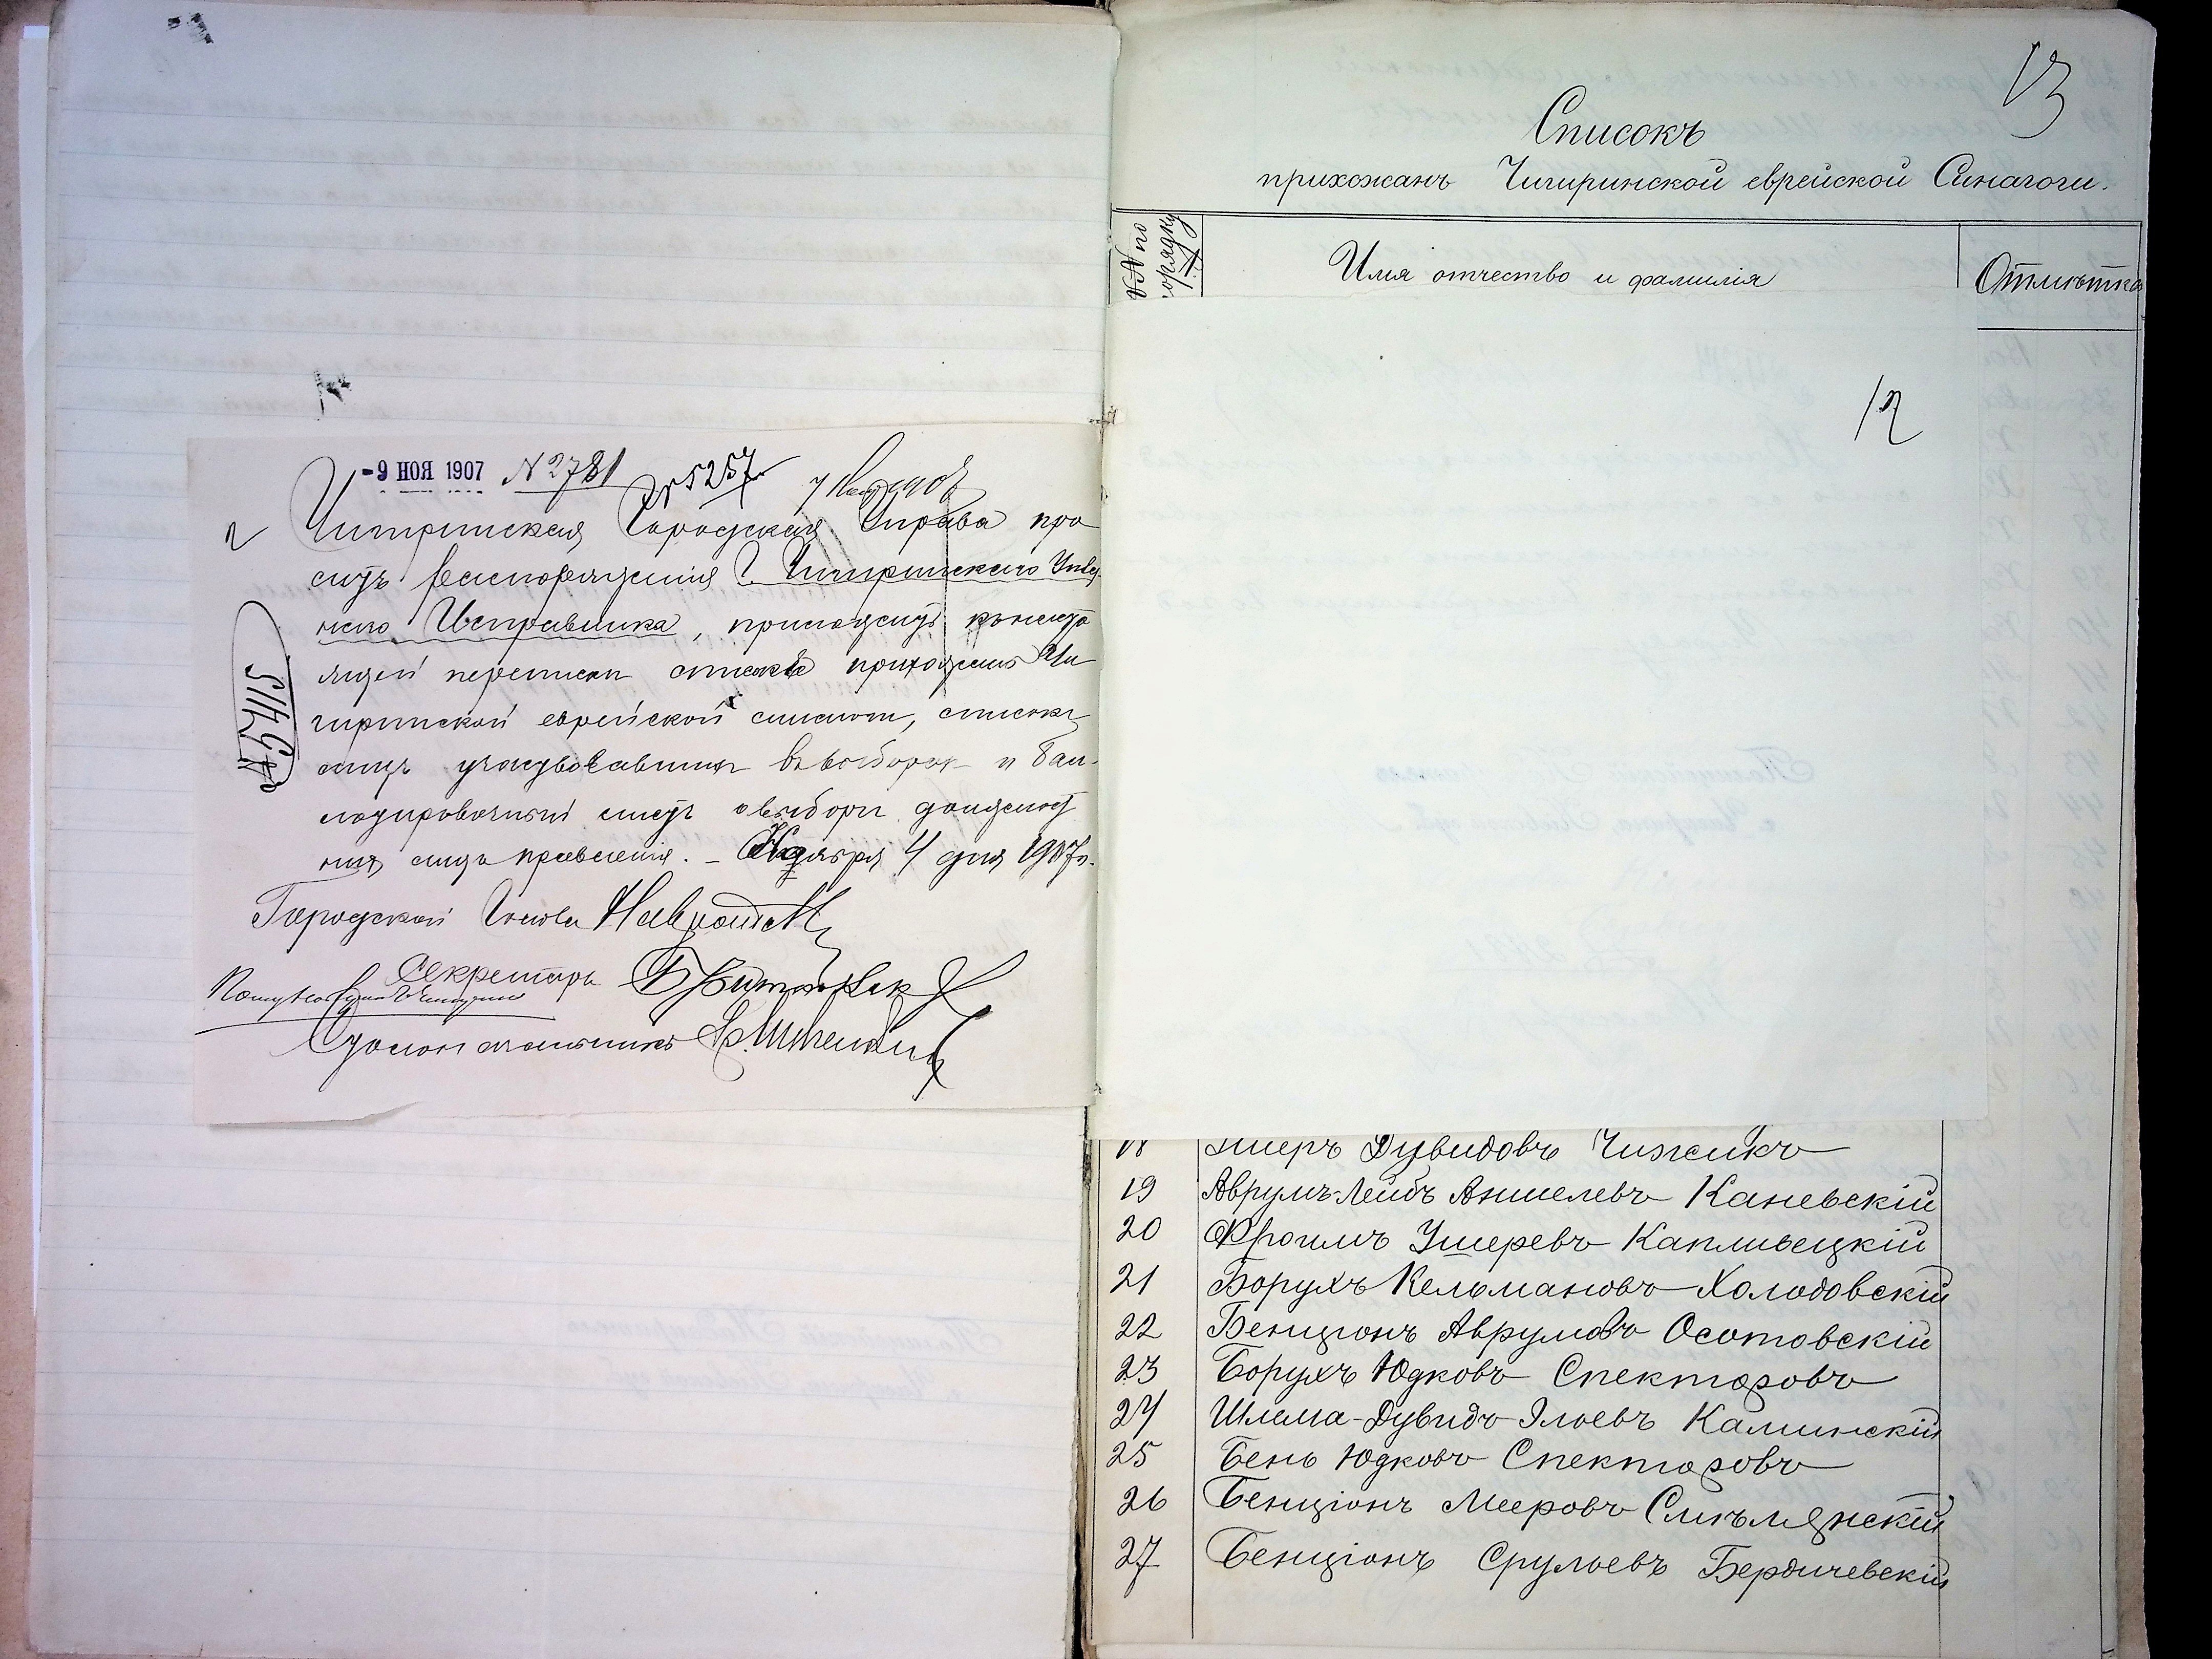 - 9 НОЯ 1907 № 2781 № 5257
Чигиринская Городская Управа про
ситъ распоряженія Г. Чигиринскаго Уѣзд-
наго Исправника, приложить къ насто
ящей перепискѣ списокъ прихожанъ Чи
гиринской еврейской синагоги, списокъ
лицъ участвовавшихъ въ выборахъ и бал-
лотировочный листъ о выборѣ должност
ныхъ лицъ правленія. – Ноября 4 дня 1907 г.
Городской Голова
Секретарь
Столоначальникъ
№ 5415
13
Списокъ
прихожанъ Чигиринской еврейской Синагоги.
№№ по порядку
Имя отчество и фамилія
Отмѣтка
12
18 Ушеръ Дувидовъ Чижикъ
19 Аврумъ-Лейбъ Аншелевъ Каневскій
20 Фроимъ Ушеревъ Капливецкій
21 Борухъ Кельмановъ Холодовскій
22 Бенціонъ Аврумовъ Осотовскій
23 Борухъ Юдковъ Спекторовъ
24 Шлема-Дувидъ Эльевъ Калинскій
25 Бень Юдковъ Спекторовъ
26 Бенціонъ Мееровъ Смѣлянскій
27 Бенціонъ Срульевъ Бердичевскій